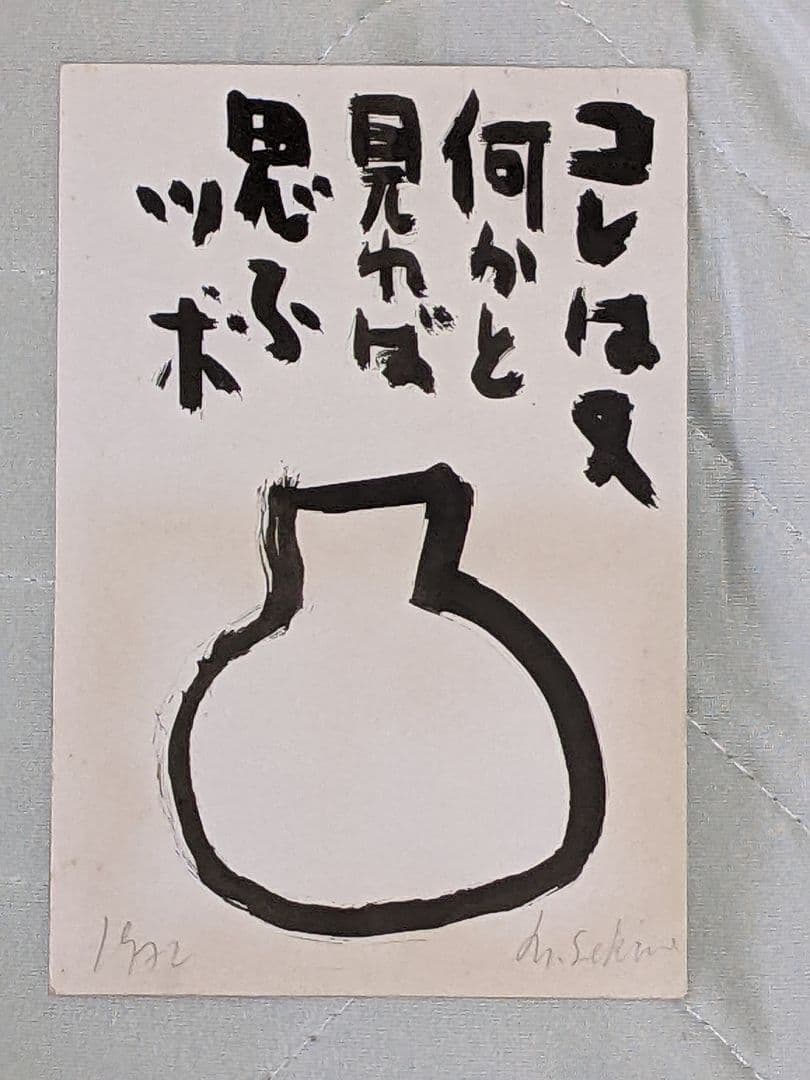 コレは又
何かと
見れば
思ふ
ツボ
1972